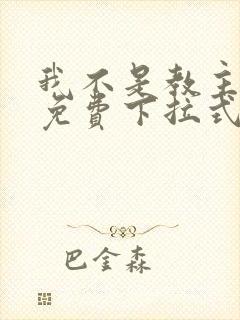 我不是教主
免费下拉式
巴金森